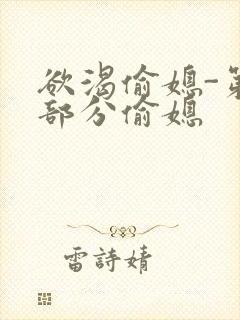 欲渴偷媳-第
部分偷媳
雷詩婧